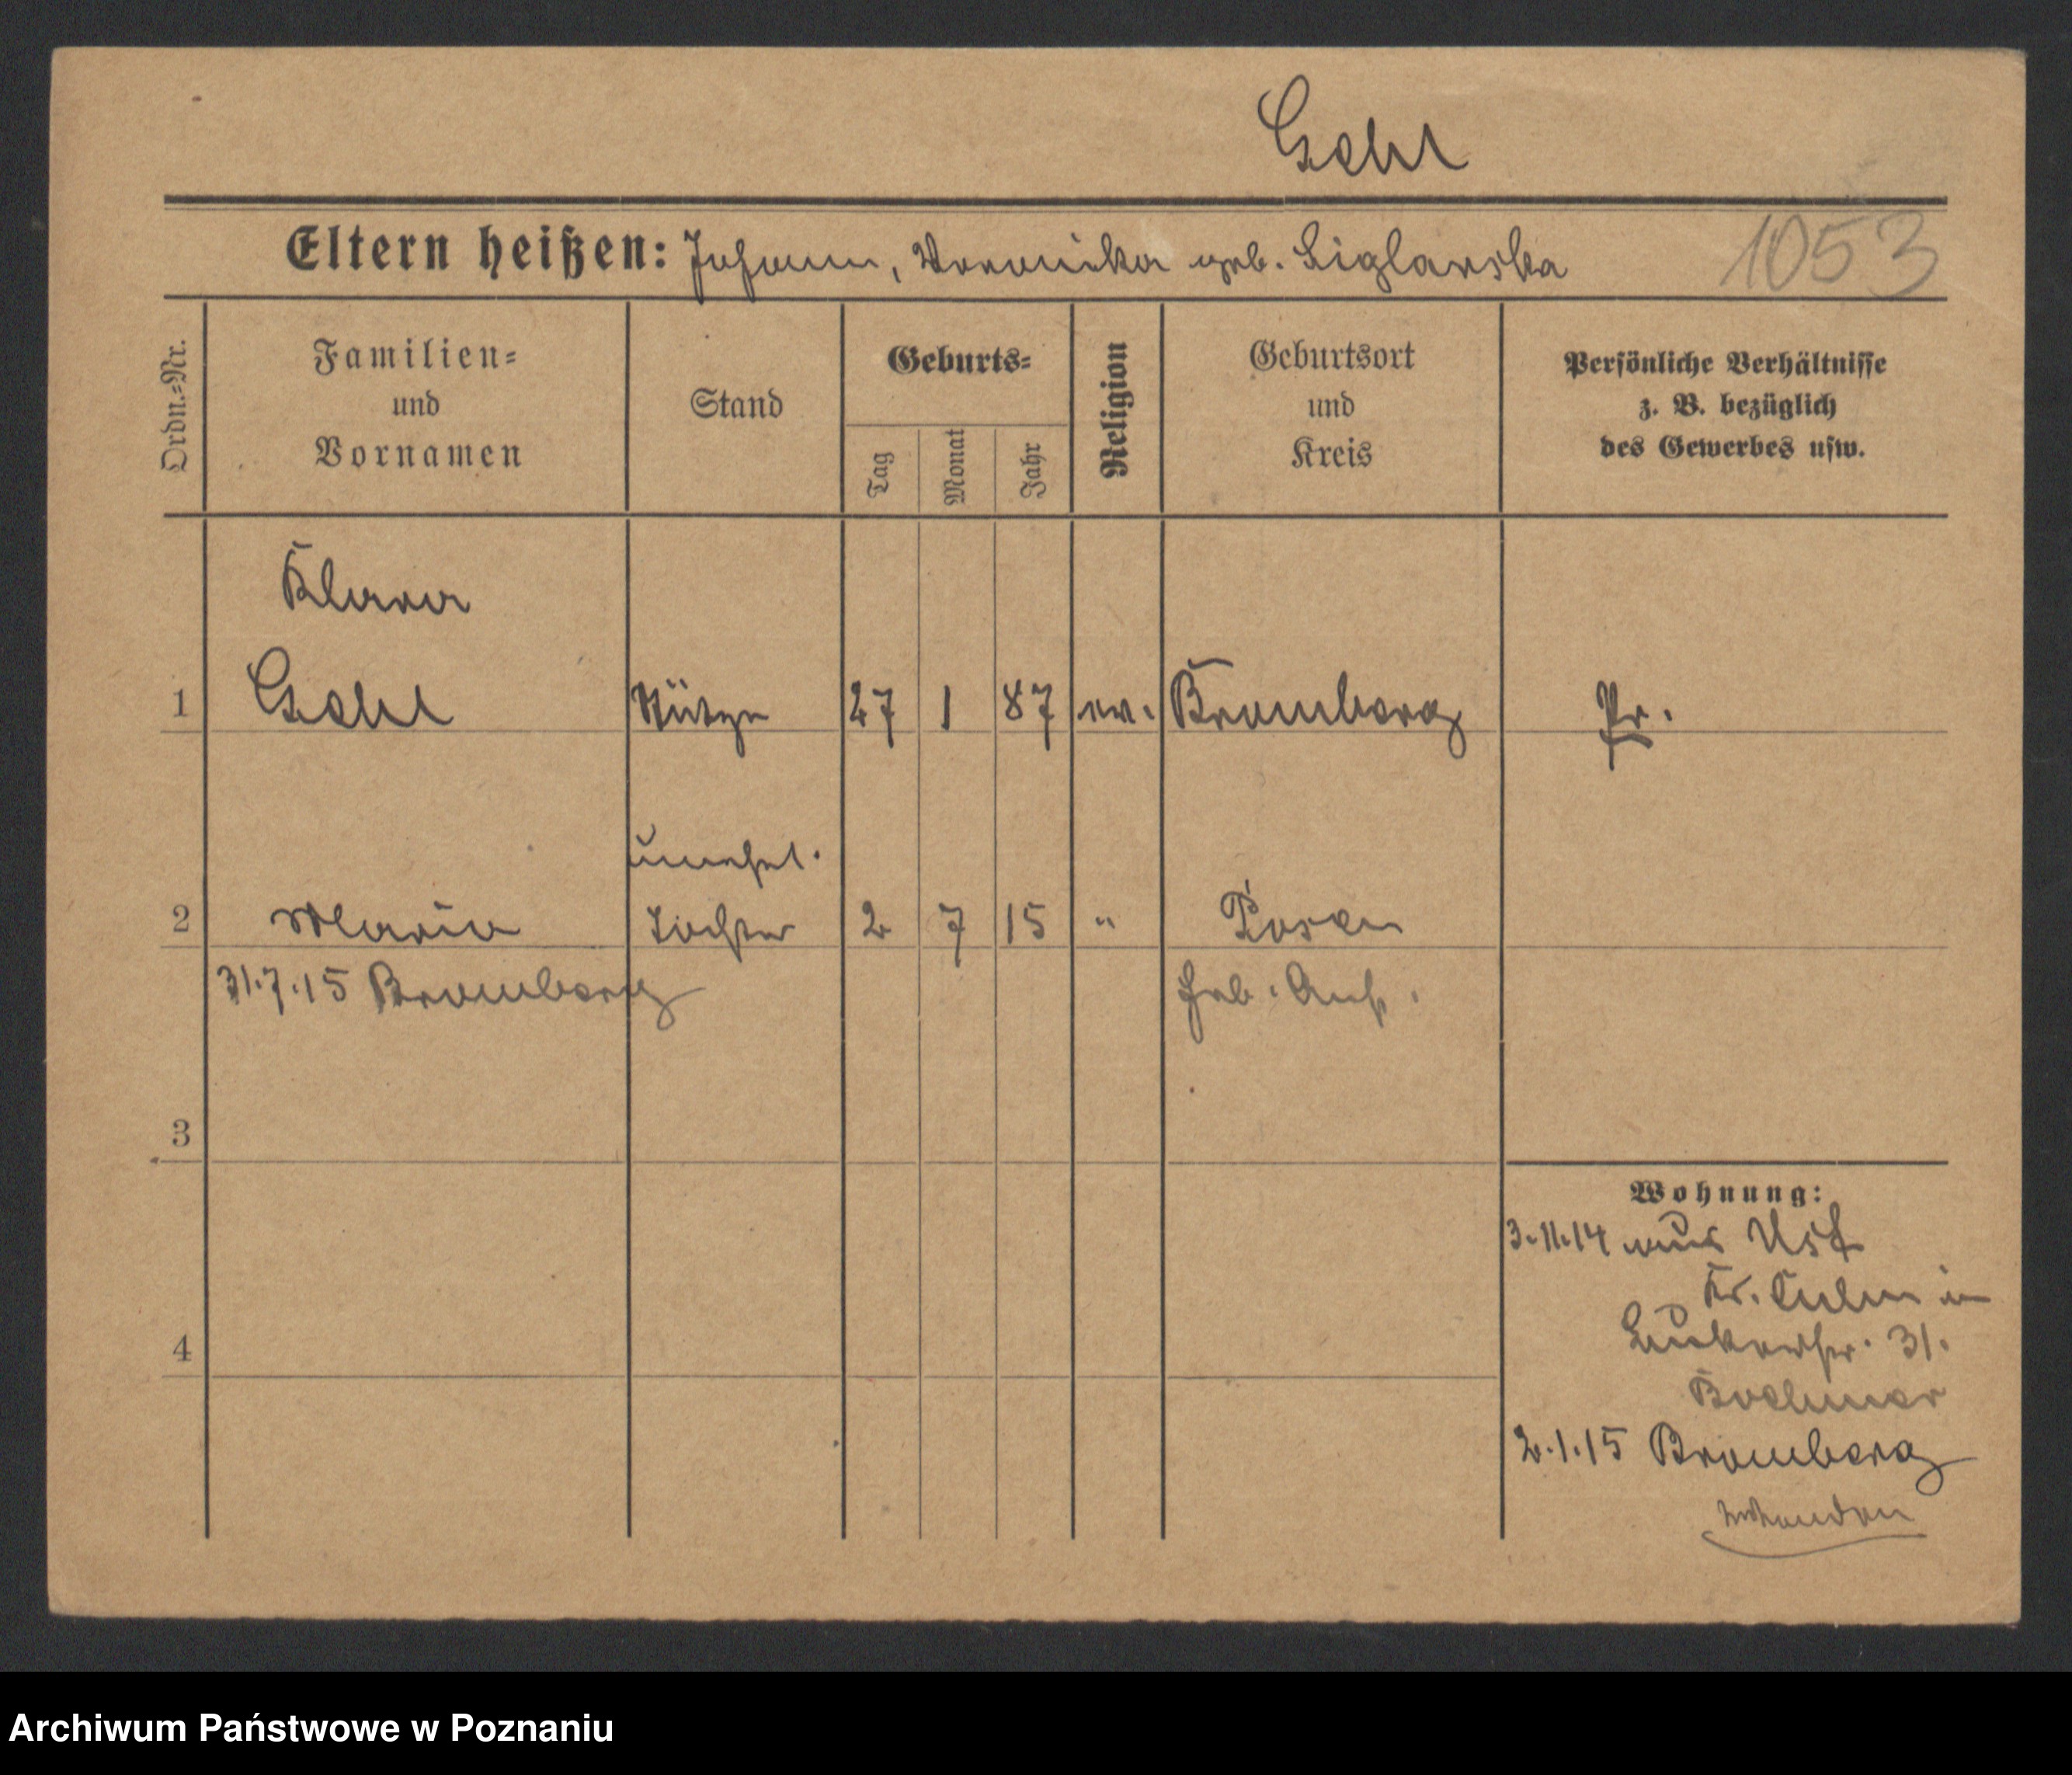 Gehl
Eltern heißen: Johann, Veronika geb. Liglarska
1053
Ordn.=Nr.
Familien=
und
Vornamen
Stand
Geburts=
Tag
Monat
Jahr
Religion
Geburtsort
und
Kreis
Persönliche Verhältnisse
z. B. bezüglich
des Gewerbes usw.
Klara
1 Gehl Stütze 27 1 87 ev. Bromberg Pr.
unehel.
2 Maria Tochter 2 7 15 " Posen
31.7.15 Bromberg Heb. Anst.
3
Wohnung:
3.11.14 aus
Kr. Culm in
4
31.
Boehmer
2.1.15 Bromberg
Archiwum Państwowe w Poznaniu